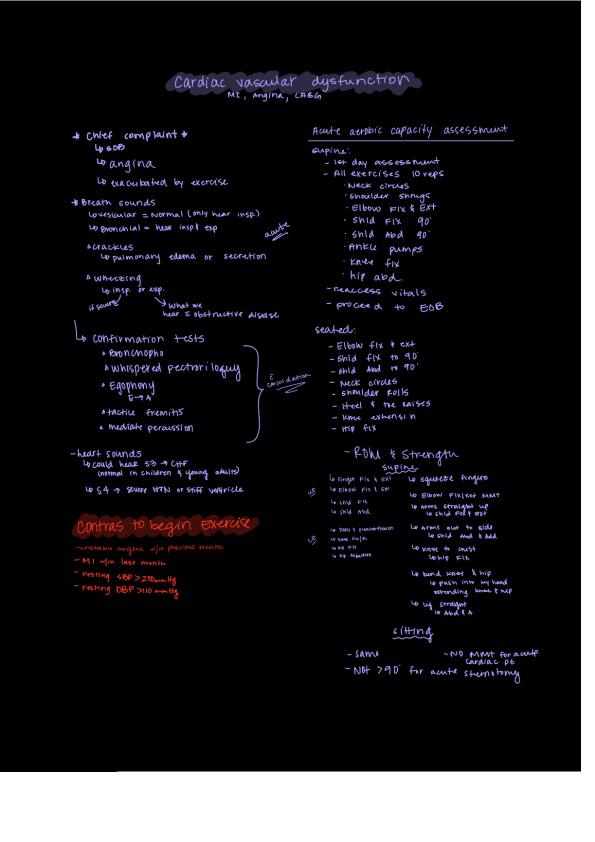 Cardiac vascular dysfunction
MI, Angina, CABG
* Chief complaint *
↳ SOB
↳ angina
↳ exacerbated by exercise
* Breath sounds
↳ vesicular = Normal (only hear insp.)
↳ Bronchial = hear insp & exp
acute
crackles
↳ pulmonary edema or secretion
wheezing
↳ insp. or exp.
if severe
What we
hear c̄ obstructive disease
↳ confirmation tests
Bronchopho
whispered pectroriloquy
Egophony
E→A
tactile fremitis
mediate percussion
c̄ consolidation
- heart sounds
↳ could hear S3 → CHF
(normal in children & young adults)
↳ S4 → severe HTN or stiff ventricle
Contras to begin Exercise
- unstable angina w/in previous month
- MI w/in last month
- resting SBP > 200 mmHg
- resting DBP > 110 mmHg
Acute aerobic capacity assessment
supine:
- 1st day assessment
- All exercises 10 reps
· Neck circles
· Shoulder shrugs
· Elbow Flx & Ext
· Shld Flx 90°
· Shld Abd 90°
· Ankle pumps
· Knee flx
· hip abd.
- reaccess vitals
- proceed to EOB
seated:
- Elbow flx & ext
- Shld flx to 90°
- Shld Abd to 90°
- Neck circles
- Shoulder Rolls
- Heel & toe raises
- Knee extension
- Hip flx
- ROM & Strength
supine
↳ Finger Flx & Ext
↳ Elbow Flx & Ext
↳ Shld Flx
↳ Shld Abd
↳ Hip Flx
↳ squeeze fingers
↳ Elbow Flx/ext MMT
↳ Arms straight up
↳ Shld Flx & ext
↳ Arms out to side
↳ Shld Abd & Add
↳ Knee to chest
↳ hip Flx
↳ bend knee & hip
↳ push into my hand
extending knee & hip
↳ leg straight
↳ Abd & A
sitting
- same
- NO MMT for acute
cardiac pt
- NOT >90° for acute sternotomy